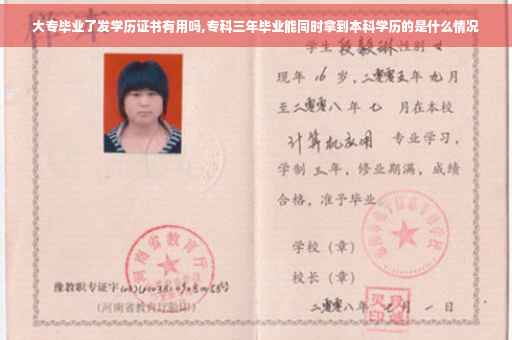 大专毕业了发学历证书有用吗,专科三年毕业能同时拿到本科学历的是什么情况
学生 段毅琳 性别 女
现年 16 岁,二零零五年 九月
至二零零八年 七 月在本校
计算机应用 专业学习,
学制 三 年,修业期满,成绩
合格,准予毕业
学校(章)
校长(章)
二零零八年 七 月 一 日
河南省教育厅
豫教职专证字
(河南省教育厅验印)